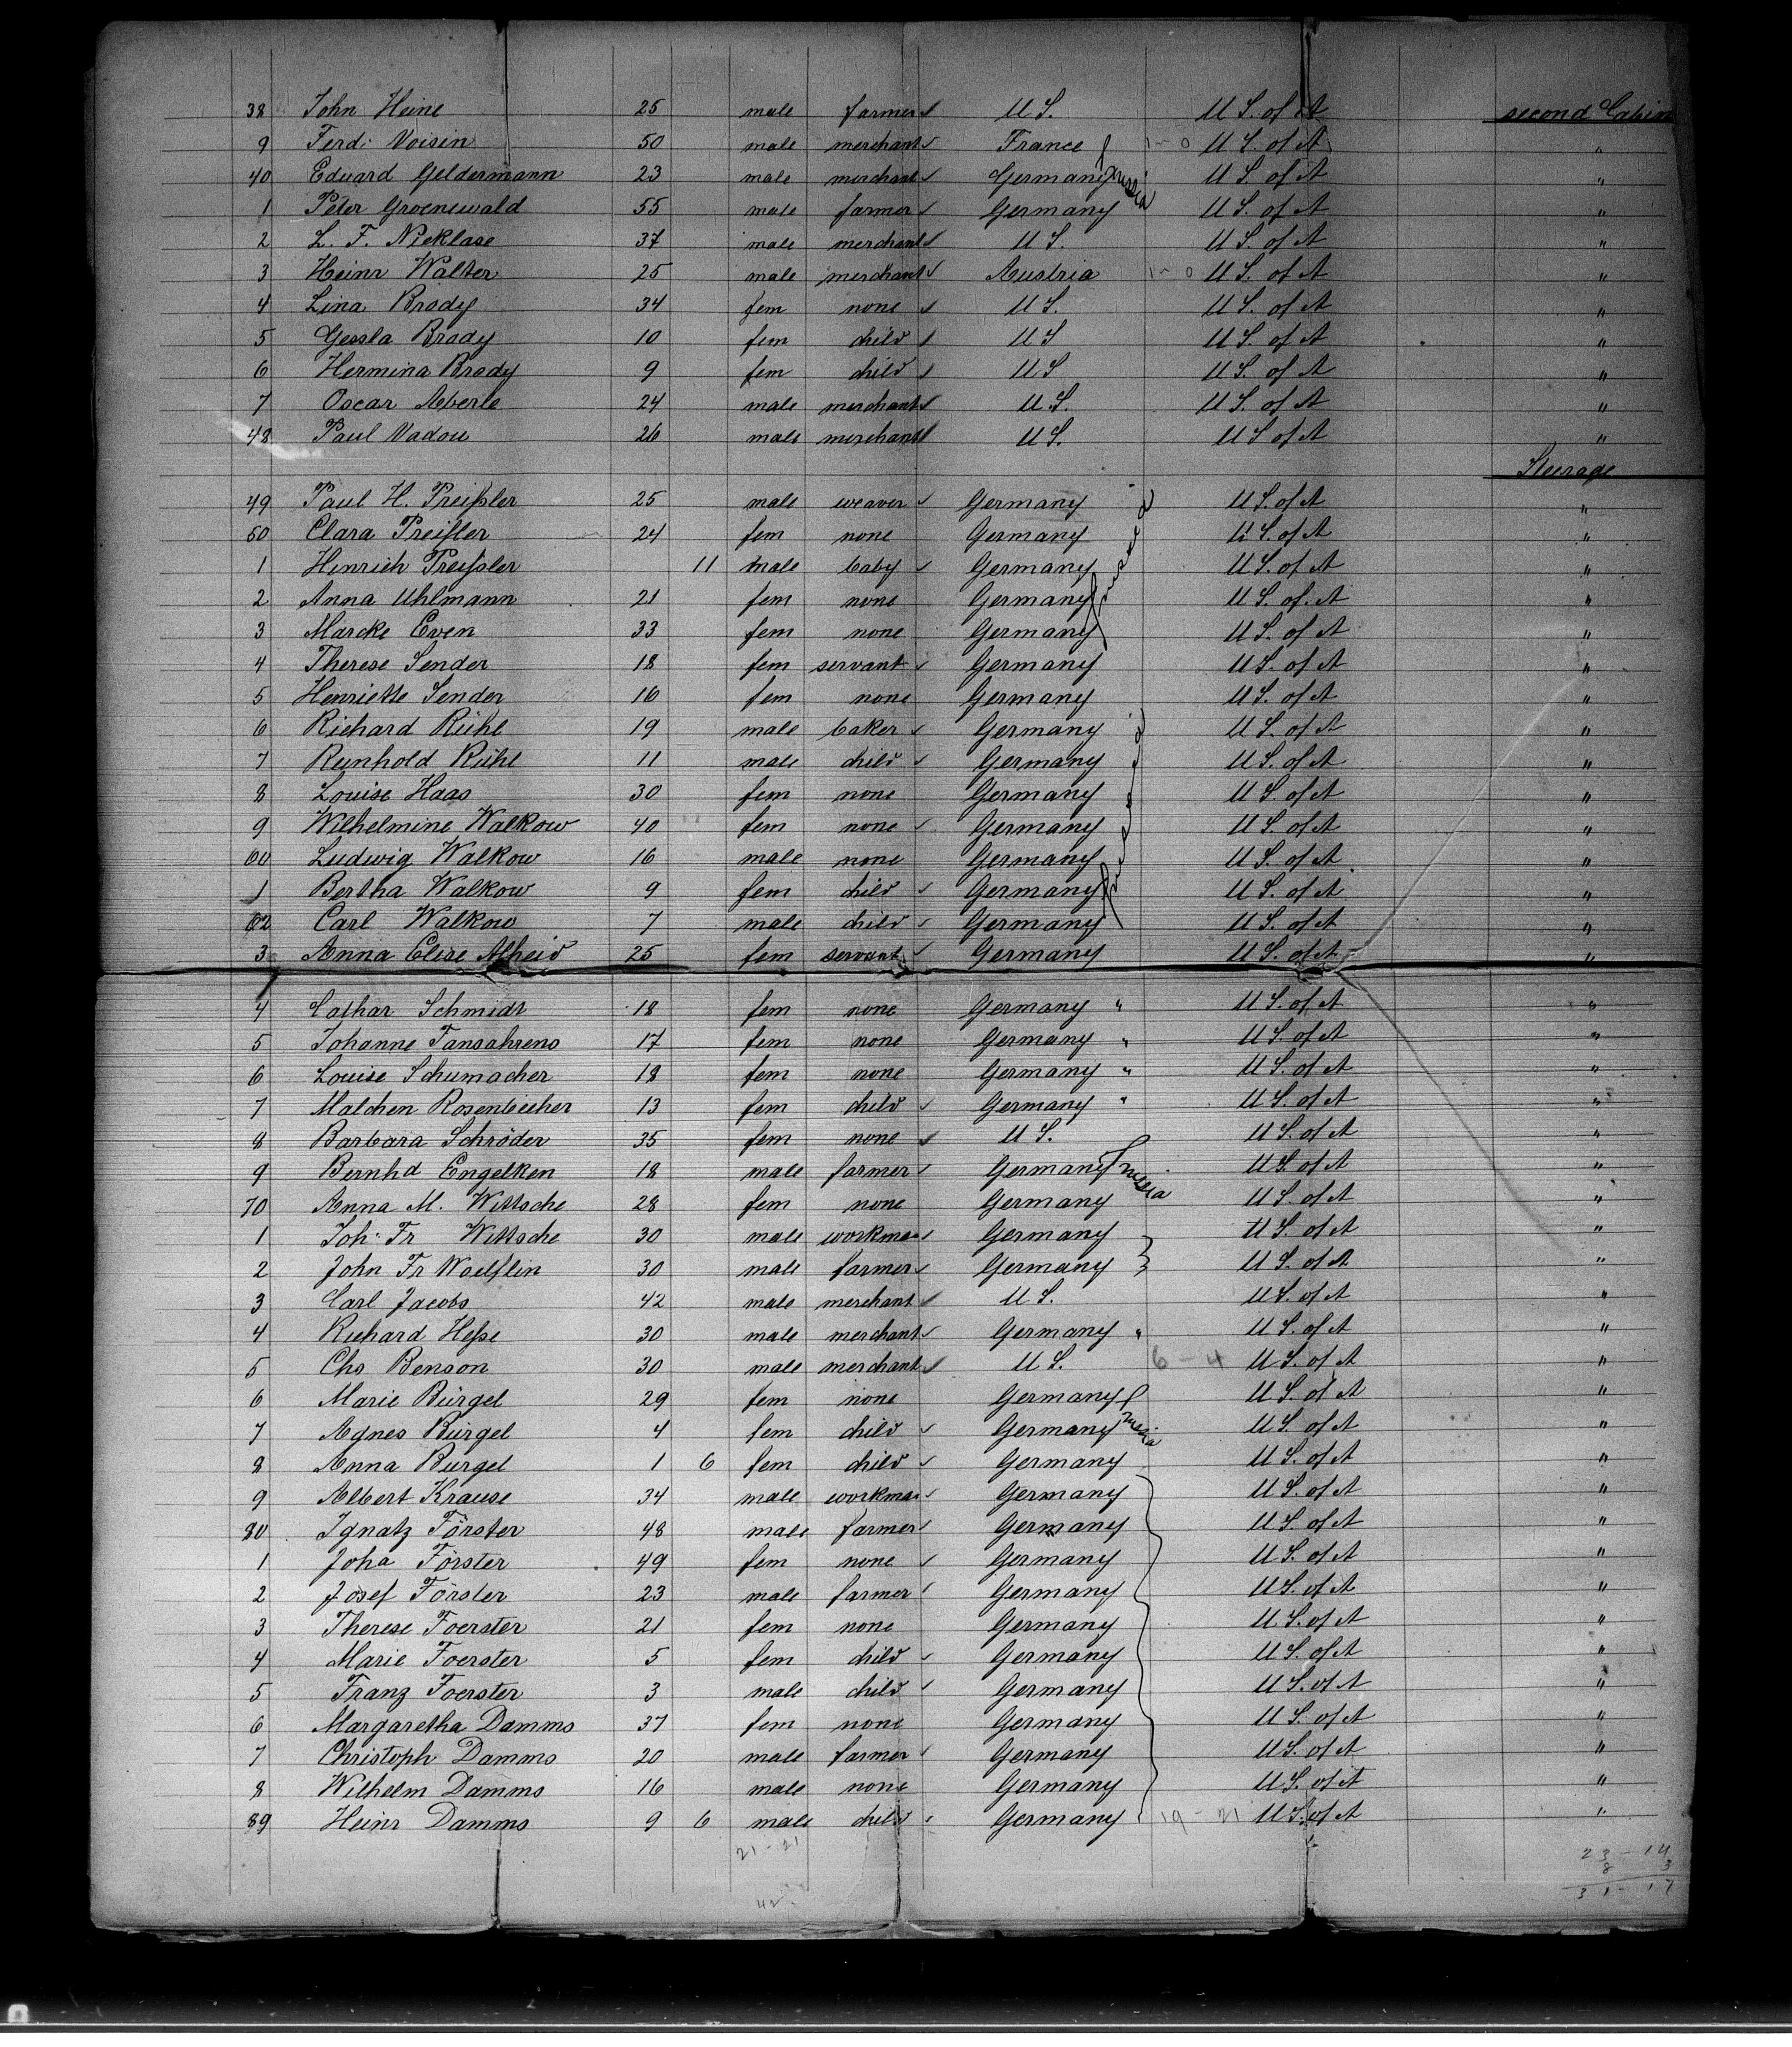 38 John Heine 25 male farmer U S. U S. of A second Cabin
9 Ferd. Voisin 50 male merchant France 1-0 U S. of A "
40 Eduard Geldermann 23 male merchant Germany Prussia U S. of A "
1 Peter Groenewald 55 male farmer Germany U S. of A "
2 L. F. Nicklase 37 male merchant U S. U S. of A "
3 Heinr Walter 25 male merchant Austria 1-0 U S. of A "
4 Lina Brody 34 fem none U S. U S. of A "
5 Gessla Brody 10 fem child U S U S. of A "
6 Hermina Brody 9 fem child U S U S. of A "
7 Oscar Aberle 24 male merchant U S. U S. of A "
48 Paul Vadou 26 male merchant U S. U S of A "
Steerage
49 Paul H. Preißler 25 male weaver Germany U S. of A "
50 Clara Preißler 24 fem none Germany U S. of A "
1 Hinrich Preißler 11 male baby Germany Prussia U S. of A "
2 Anna Uhlmann 21 fem none Germany U S. of. A "
3 Marcke Even 33 fem none Germany U S. of A "
4 Therese Sender 18 fem servant Germany U S. of A "
5 Henriette Sender 16 fem none Germany U S. of A "
6 Richard Rühl 19 male baker Germany U S. of A "
7 Reinhold Rühl 11 male child Germany U S. of A "
8 Louise Haas 30 fem none Germany U S. of A "
9 Wilhelmine Walkow 40 fem none Germany Prussia U S. of A "
60 Ludwig Walkow 16 male none Germany U S. of A "
1 Bertha Walkow 9 fem child Germany U S. of A "
62 Carl Walkow 7 male child Germany U S. of A "
3 Anna Elise Alheid 25 fem servant Germany U S. of A "
4 Cathar Schmidt 18 fem none Germany " U S. of A "
5 Johanne Tansahrens 17 fem none Germany " U S. of A "
6 Louise Schumacher 18 fem none Germany " U S. of A "
7 Malchen Rosenbecher 13 fem child Germany " U S. of A "
8 Barbara Schröder 35 fem none U S. U S. of A "
9 Bernhd Engelken 18 male farmer Germany Prussia U S. of A "
70 Anna M. Wittsche 28 fem none Germany U S. of A "
1 Joh. Fr Wittsche 30 male workman Germany U S. of A "
2 John Fr Woelflin 30 male farmer Germany U S. of A "
3 Carl Jacobs 42 male merchant U S. U S. of A "
4 Richard Heße 30 male merchant Germany " U S. of A "
5 Chs Benson 30 male merchant U S. 6-4 U S. of A "
6 Marie Bürgel 29 fem none Germany U S. of A "
7 Agnes Bürgel 4 fem child Germany Prussia U S. of A "
8 Anna Bürgel 1 6 fem child Germany U S. of A "
9 Albert Krause 34 male workman Germany U S. of A "
80 Ignatz Förster 48 male farmer Germany U S. of A "
1 Joha Förster 49 fem none Germany U S. of A "
2 Josef Förster 23 male farmer Germany U S. of A "
3 Therese Foerster 21 fem none Germany U S. of A "
4 Marie Foerster 5 fem child Germany U S. of A "
5 Franz Foerster 3 male child Germany U S. of A "
6 Margaretha Damms 37 fem none Germany U S. of A "
7 Christoph Damms 20 male farmer Germany U S. of A "
8 Wilhelm Damms 16 male none Germany U S. of A "
89 Heinr Damms 9 6 male child Germany 19-21 U S. of A "
21-21
23-14
8 3
31-17
42